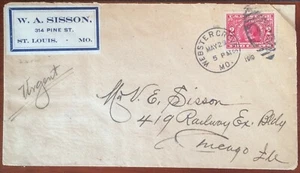 W. A. SISSON,
314 PINE ST.
ST. LOUIS, - MO.
WEBSTER
MAY
5 PM
MO.
Urgent
Mr V. E. Sisson
419 Railway Ex. Bldg
Chicago Ill